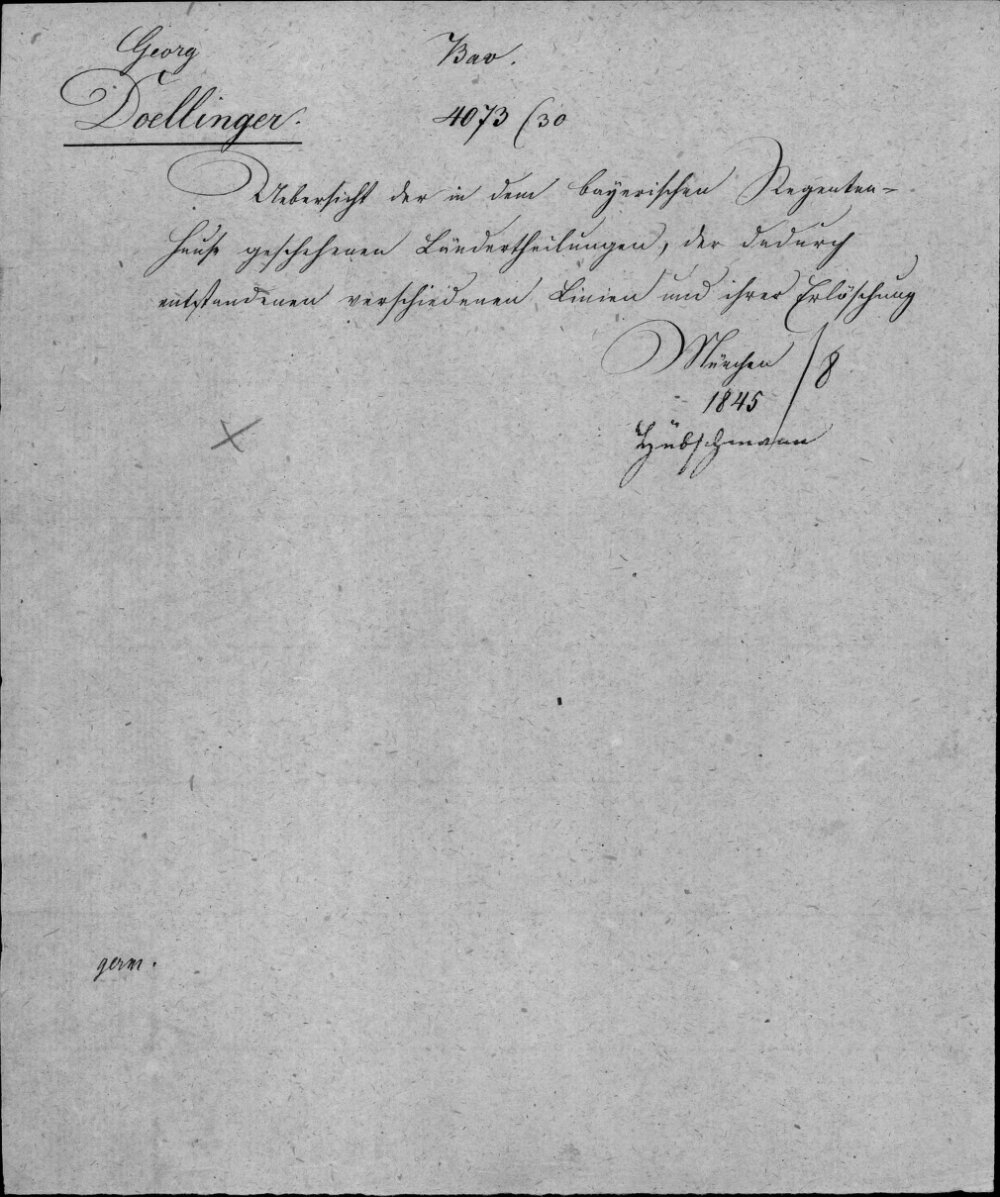 Georg
Bav.
Doellinger.
4073 (30
Uebersicht der in dem bayerischen Regenten-
hause geschehenen Ländertheilungen, der dadurch
entstandenen verschiedenen Linien und ihrer Erlöschung
München
8
1845
Hübschmann
germ.